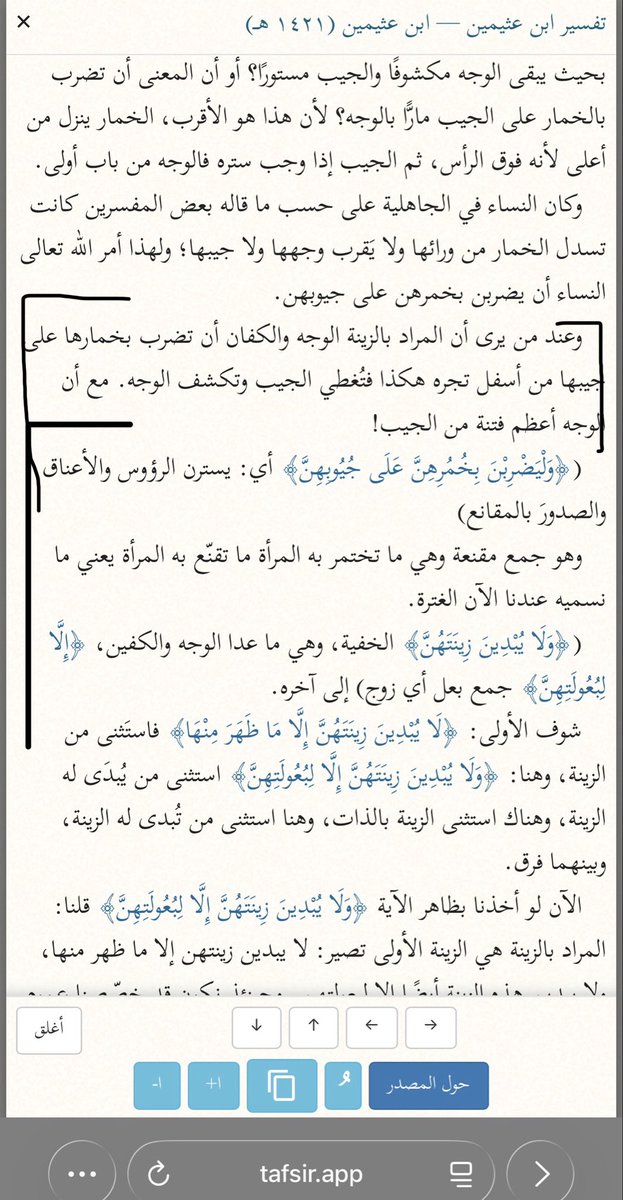 تفسير ابن عثيمين — ابن عثيمين (١٤٢١ هـ)
×
بحيث يبقى الوجه مكشوفًا والجيب مستورًا؟ أو أن المعنى أن تضرب
بالخمار على الجيب مارًّا بالوجه؟ لأن هذا هو الأقرب، الخمار ينزل من
أعلى لأنه فوق الرأس، ثم الجيب إذا وجب ستره فالوجه من باب أولى.
وكان النساء في الجاهلية على حسب ما قاله بعض المفسرين كانت
تسدل الخمار من ورائها ولا يَقرب وجهها ولا جيبها؛ ولهذا أمر الله تعالى
النساء أن يضربن بخمرهن على جيوبهن.
وعند من يرى أن المراد بالزينة الوجه والكفان أن تضرب بخمارها على
جيبها من أسفل تجره هكذا فتُغطي الجيب وتكشف الوجه. مع أن
الوجه أعظم فتنة من الجيب!
(﴿وَلْيَضْرِبْنَ بِخُمُرِهِنَّ عَلَى جُيُوبِهِنَّ﴾ أي: يسترن الرؤوس والأعناق
والصدورَ بالمقانع)
وهو جمع مقنعة وهي ما تختمر به المرأة ما تقنّع به المرأة يعني ما
نسميه عندنا الآن الغترة.
(﴿وَلَا يُبْدِينَ زِينَتَهُنَّ﴾ الخفية، وهي ما عدا الوجه والكفين، ﴿إِلَّا
لِبُعُولَتِهِنَّ﴾ جمع بعل أي زوج) إلى آخره.
شوف الأولى: ﴿لَا يُبْدِينَ زِينَتَهُنَّ إِلَّا مَا ظَهَرَ مِنْهَا﴾ فاستَثنى من
الزينة، وهنا: ﴿وَلَا يُبْدِينَ زِينَتَهُنَّ إِلَّا لِبُعُولَتِهِنَّ﴾ استثنى من يُبدَى له
الزينة، وهناك استثنى الزينة بالذات، وهنا استثنى من تُبدى له الزينة،
وبينهما فرق.
الآن لو أخذنا بظاهر الآية ﴿وَلَا يُبْدِينَ زِينَتَهُنَّ إِلَّا لِبُعُولَتِهِنَّ﴾ قلنا:
المراد بالزينة هي الزينة الأولى تصير: لا يبدين زينتهن إلا ما ظهر منها،
أغلق
↓ ↑ ← →
حول المصدر
وُ
ا+
ا-
tafsir.app